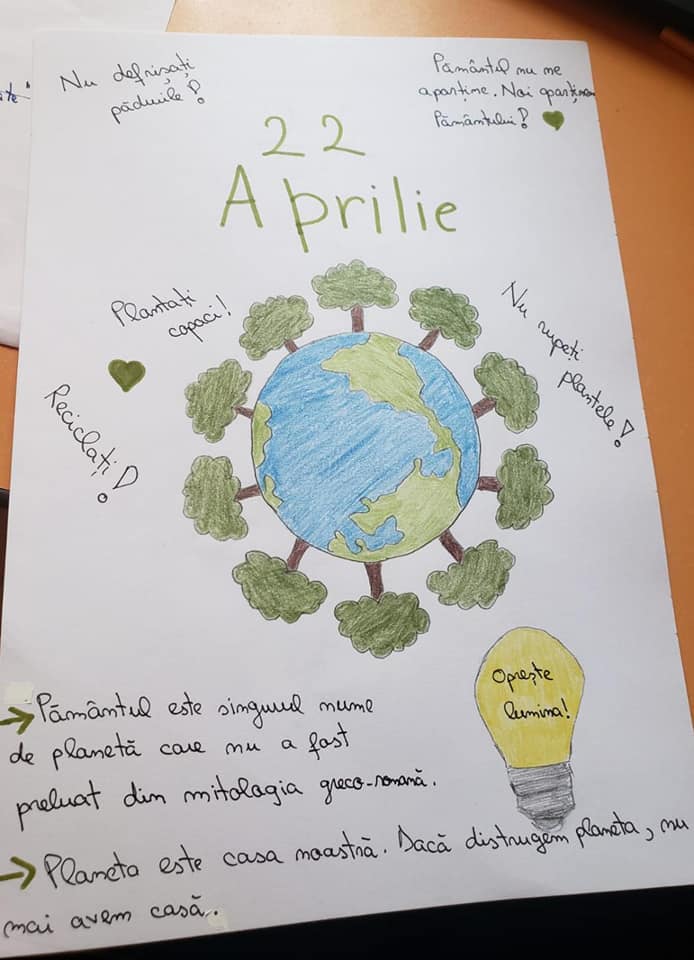 Nu defrișați
pădurile!
Pământul nu ne
aparține. Noi aparținem
Pământului!
22
Aprilie
Plantați
copaci!
Nu rupeți
plantele!
Reciclați!
Oprește
lumina!
→ Pământul este singurul nume
de planetă care nu a fost
preluat din mitologia greco-romană.
→ Planeta este casa noastră. Dacă distrugem planeta, nu
mai avem casă.